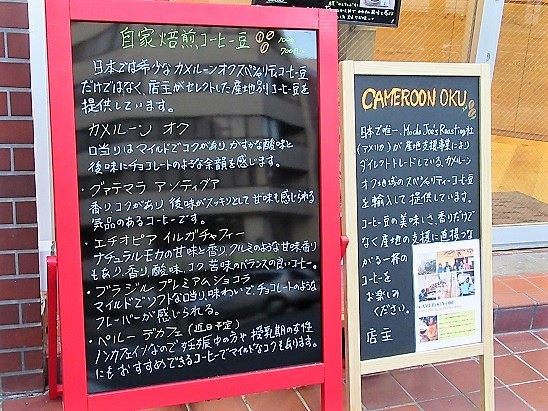 自家焙煎コーヒー豆 100g 700円~
日本では希少なカメルーンオクスペシャリティコーヒー豆
だけではなく、店主がセレクトした産地別コーヒー豆を
提供しています。
カメルーン オク
口当りはマイルドでコクがあり、かすかな酸味と
後味にチョコレートのような余韻を感じます。
・グァテマラ アンティグア
香りコクがあり、後味がスッキリとして甘味も感じられる
気品のあるコーヒーです。
・エチオピア イルガチャフィー
ナチュラルモカの甘味と香り、クルミのような甘味香り
もあり、香り、酸味、コク、苦味のバランスの良いコーヒー。
・ブラジル プレミアムショコラ
マイルドでソフトな口当り、味わいで、チョコレートのような
フレーバーが感じられる。
・ペルー デカフェ (近日予定)
ノンカフェインなので妊娠中の方や授乳期の女性
にもおすすめできるコーヒーでマイルドなコクもあります。
CAMEROON OKU
日本で唯一、Mocha Joe's Roasting社
(アメリカ)が産地支援事業により
ダイレクトトレードしている、カメルーン
オク地域のスペシャリティーコーヒー豆
を輸入して提供しています。
コーヒーの美味しさ香りだけで
なく産地の支援に直接つな
がる一杯の
コーヒーを
お楽しみ
ください。
店主
CAMEROON OKU